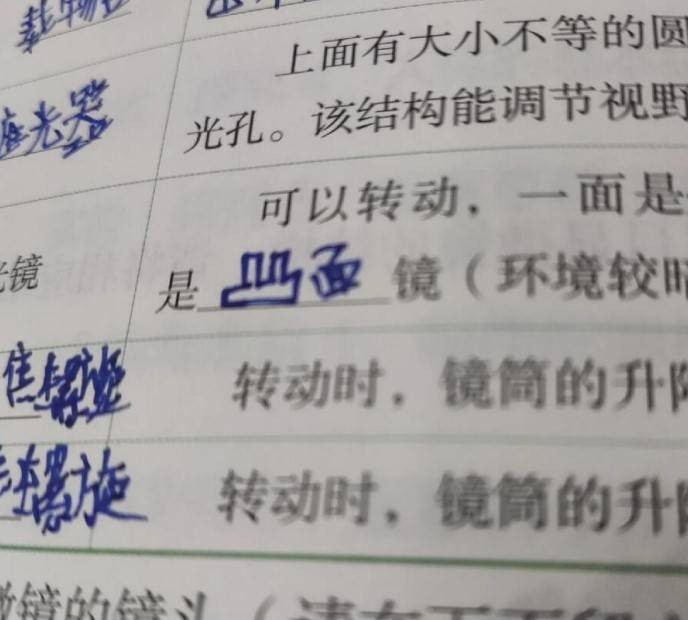 载物
上面有大小不等的圆
遮光器
光孔。该结构能调节视野
可以转动，一面是
光镜
是凹面镜（环境较暗
焦螺旋
转动时，镜筒的升降
准螺旋
转动时，镜筒的升降
微镜的镜头（请在下面